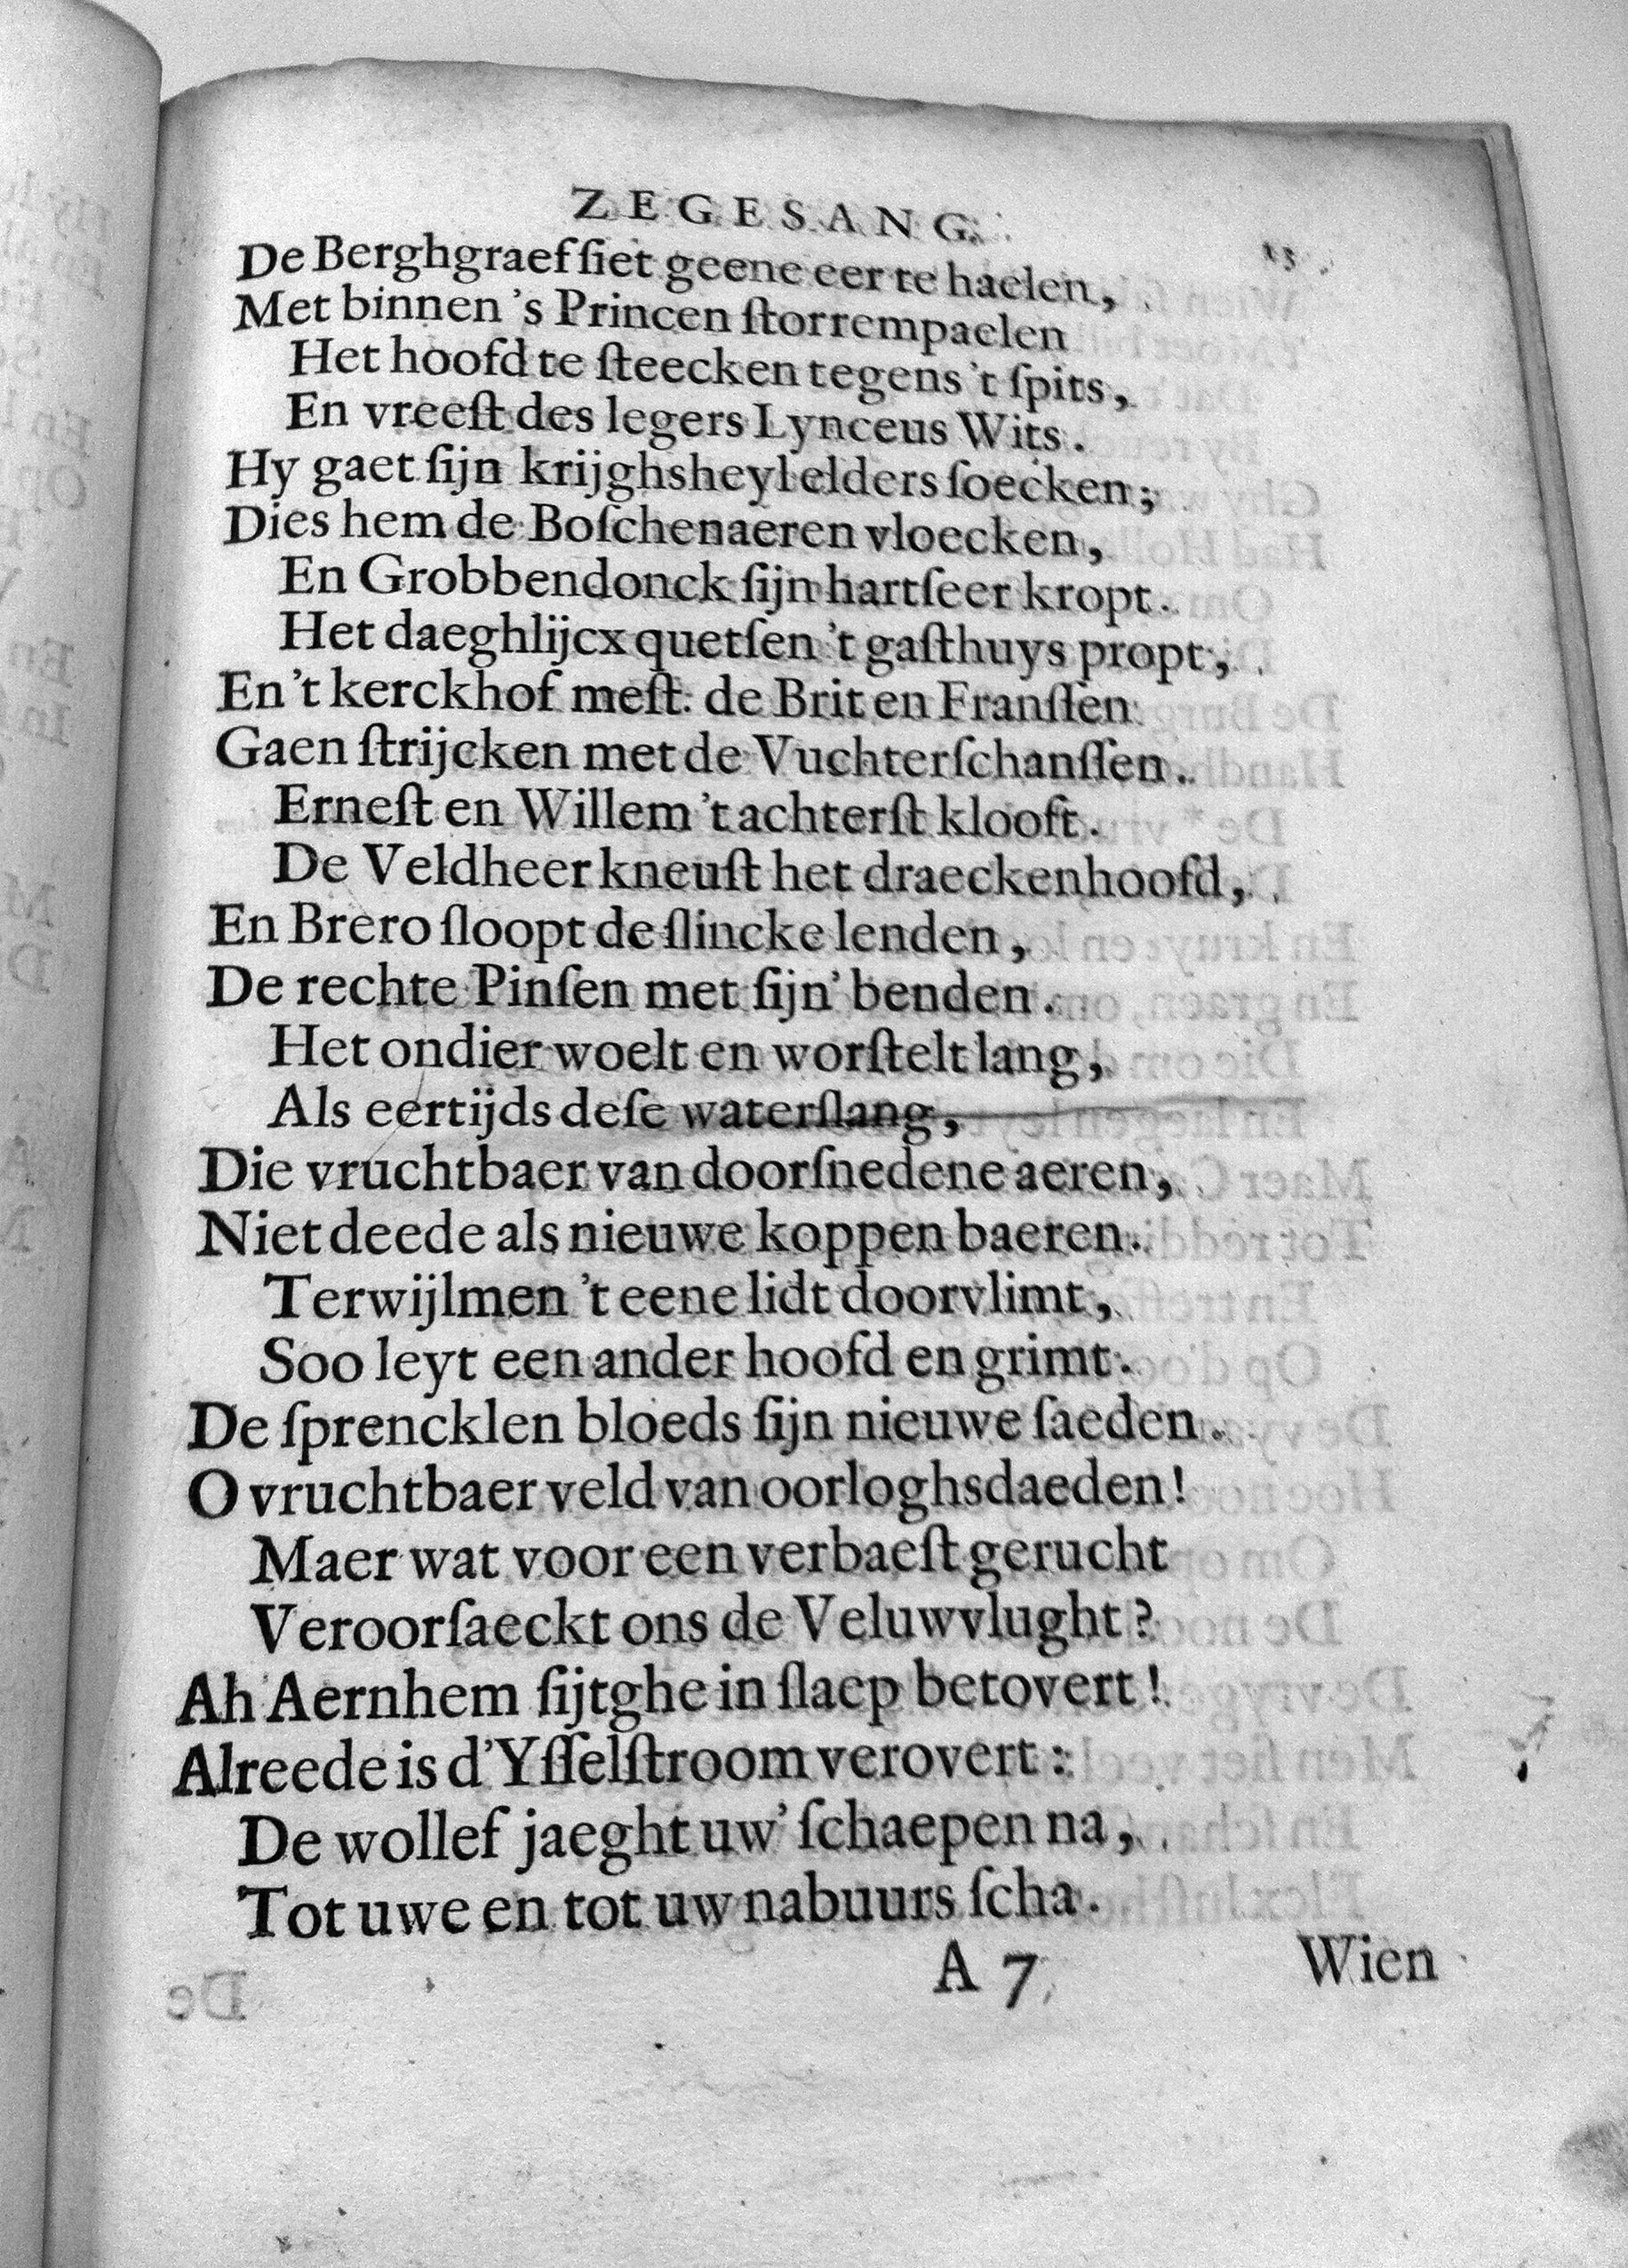 ZEGESANG.
De Berghgraef ſiet geene eer te haelen,
Met binnen 's Princen ſtorrempaelen
Het hoofd te ſteecken tegens 't ſpits,
En vreeſt des legers Lynceus Wits.
Hy gaet ſijn krijghsheyl elders ſoecken;
Dies hem de Boſchenaeren vloecken,
En Grobbendonck ſijn hartſeer kropt.
Het daeghlijcx quetſen 't gaſthuys propt,
En 't kerckhof meſt: de Brit en Franſſen
Gaen ſtrijcken met de Vuchterſchanſſen.
Erneſt en Willem 't achterſt klooft.
De Veldheer kneuſt het draeckenhoofd,
En Brero ſloopt de ſlincke lenden,
De rechte Pinſen met ſijn' benden.
Het ondier woelt en worſtelt lang,
Als eertijds deſe waterſlang,
Die vruchtbaer van doorſnedene aeren,
Niet deede als nieuwe koppen baeren.
Terwijlmen 't eene lidt doorvlimt,
Soo leyt een ander hoofd en grimt.
De ſprencklen bloeds ſijn nieuwe ſaeden.
O vruchtbaer veld van oorloghsdaeden!
Maer wat voor een verbaeſt gerucht
Veroorſaeckt ons de Veluwvlught?
Ah Aernhem ſijtghe in ſlaep betovert!
Alreede is d'Yſſelſtroom verovert:
De wollef jaeght uw' ſchaepen na,
Tot uwe en tot uw nabuurs ſcha.
A 7 Wien